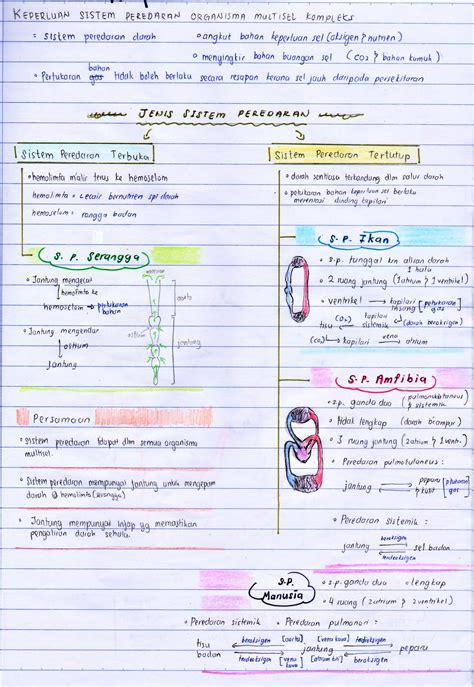 KEPERLUAN SISTEM PEREDARAN ORGANISMA MULTISEL KOMPLEKS
= sistem peredaran darah
• angkut bahan keperluan sel (oksigen & nutrien)
• menyingkir bahan buangan sel (CO2 & bahan kumuh)
• Pertukaran gas bahan tidak boleh berlaku secara resapan kerana sel jauh daripada persekitaran
JENIS SISTEM PEREDARAN
Sistem Peredaran Terbuka
• hemolimfa m'alir terus ke hemoselom
hemolimfa = cecair bernutrien spt darah
hemoselom = rongga badan
S.P. Serangga
• Jantung mengecut
↓ hemolimfa ke
hemoselom → pertukaran bahan
• Jantung mengendur
↓ ostium
jantung
aorta
ostium
jantung
Persamaan
• Sistem peredaran tdapat dlm semua organisma
multisel.
• Sistem peredaran mempunyai jantung untuk mengepam
darah @ hemolimfa (serangga)
• Jantung mempunyai injap yg memastikan
pengaliran darah sehala.
Sistem Peredaran Tertutup
• darah sentiasa terkandung dlm salur darah
• pertukaran bahan keperluan sel berlaku
merentasi dinding kapilari
S.P. Ikan
• s.p. tunggal krn aliran darah
1 hala
• 2 ruang jantung (1 atrium & 1 ventrikel)
• ventrikel → kapilari insang [pertukaran gas]
(O2) tisu ← kapilari sistemik (darah beroksigen)
(CO2) → kapilari vena → atrium
S.P. Amfibia
• s.p. ganda dua (pulmokutaneus & sistemik)
• tidak lengkap (darah b'campur)
• 3 ruang jantung (2 atrium & 1 ventr.)
• Peredaran pulmokutaneus:
jantung peparu & kulit [ptukaran gas]
• Peredaran sistemik :
jantung beroksigen terdeoksigen sel badan
S.P. Manusia
• s.p. ganda dua • lengkap
• 4 ruang (2 atrium & 2 ventrikel)
• Peredaran sistemik • Peredaran pulmonari :
tisu badan beroksigen [aorta] [vena kava] terdeoksigen
jantung peparu
terdeoksigen [vena kava] [atrium kiri] beroksigen